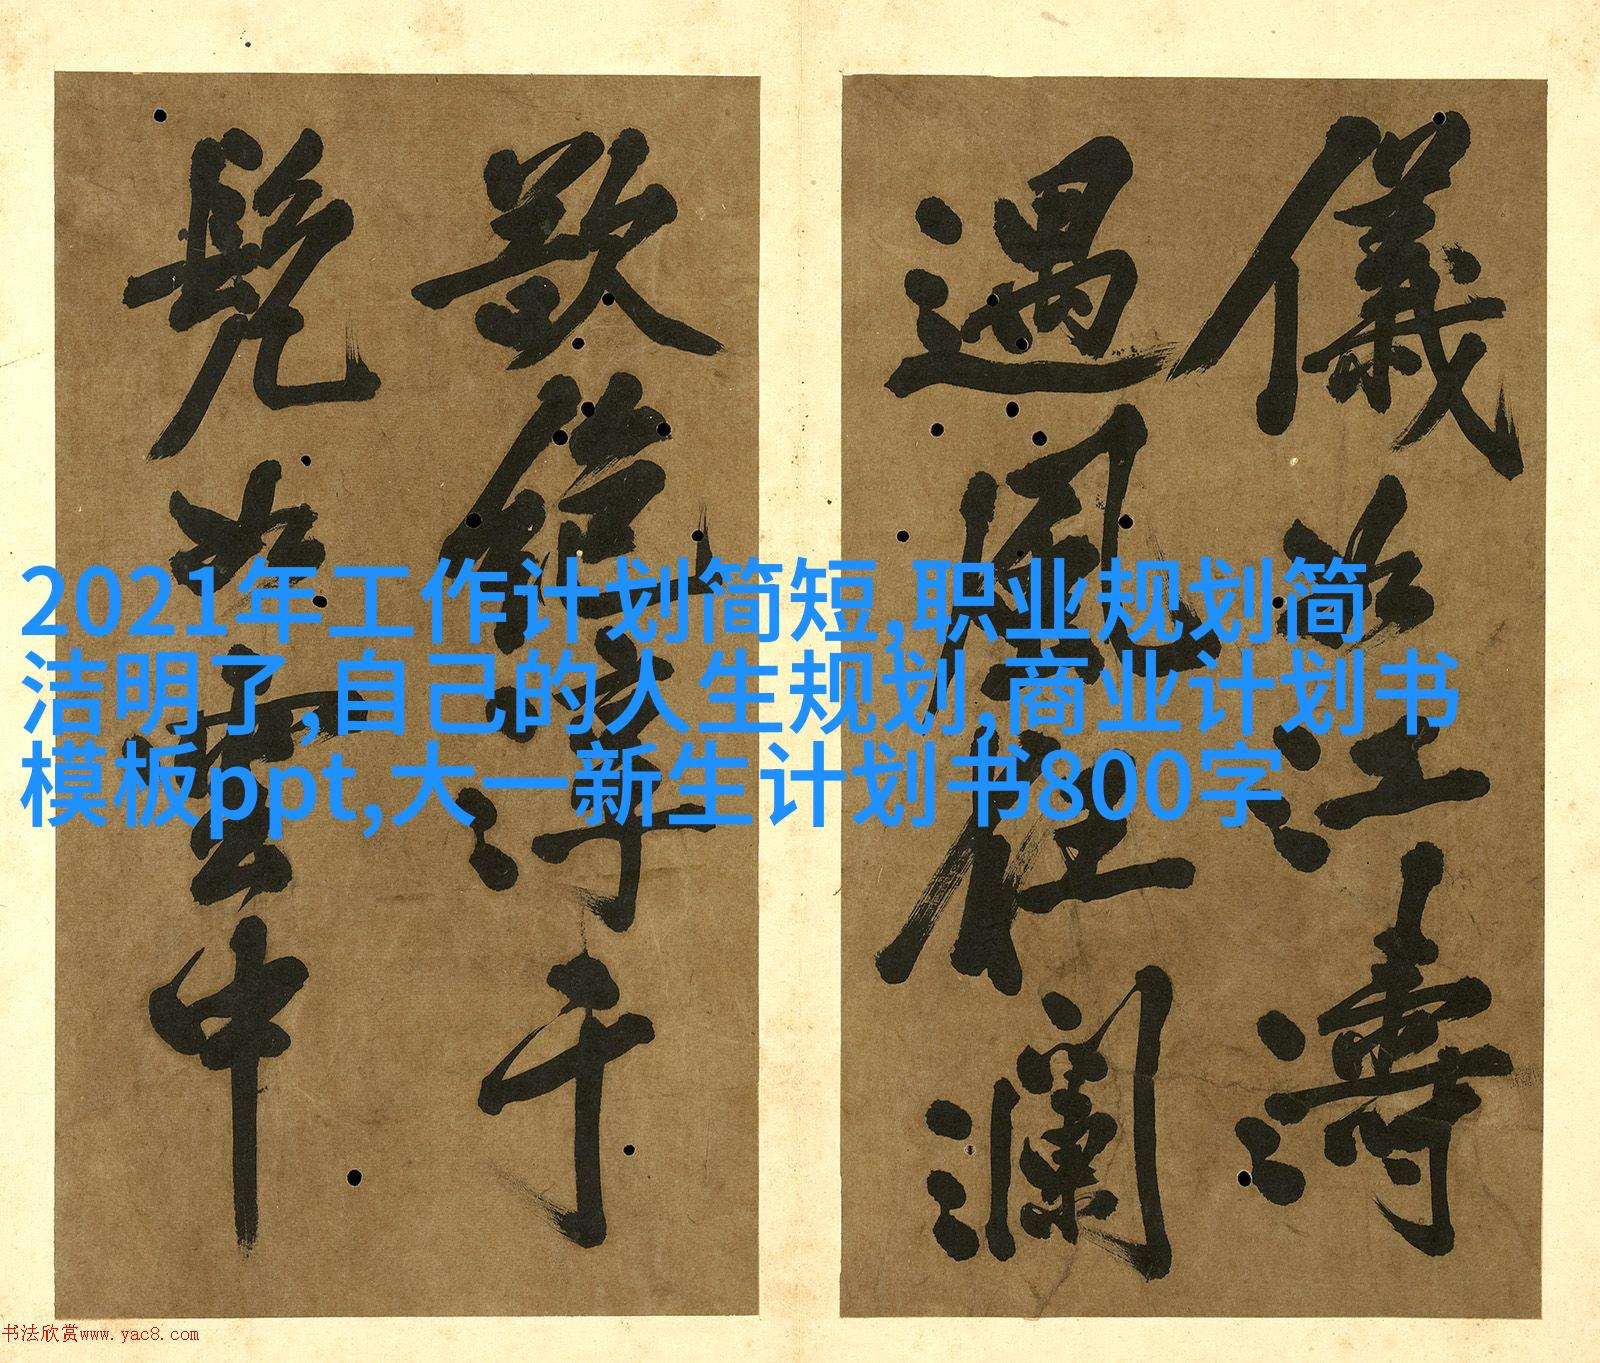 2021年工作计划简短,职业规划简
洁明了,自己的人生规划,商业计划书
模板ppt,大一新生计划书800字
儀江濤
風瀾
淳于
髡如雲中
书法欣赏www.yac8.com